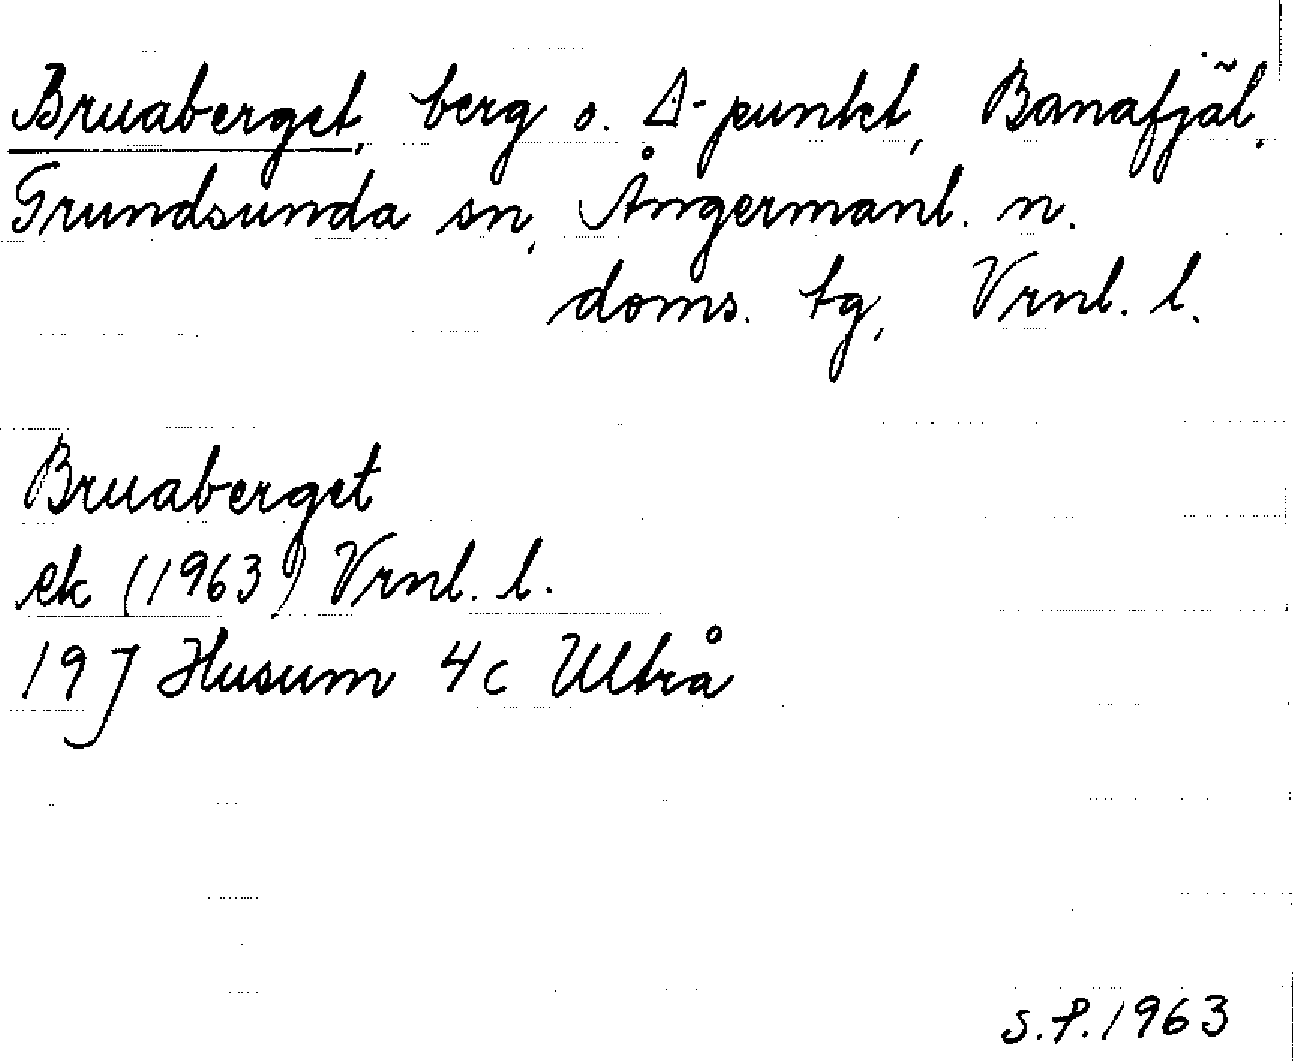 Bruaberget, berg o. Δ-punkt, Banafjäl,
Grundsunda sn, Ångermanl. n.
doms. tg, Vrnl. l.
Bruaberget
ek (1963) Vrnl. l.
19J Husum 4c Ultrå
S.P. 1963